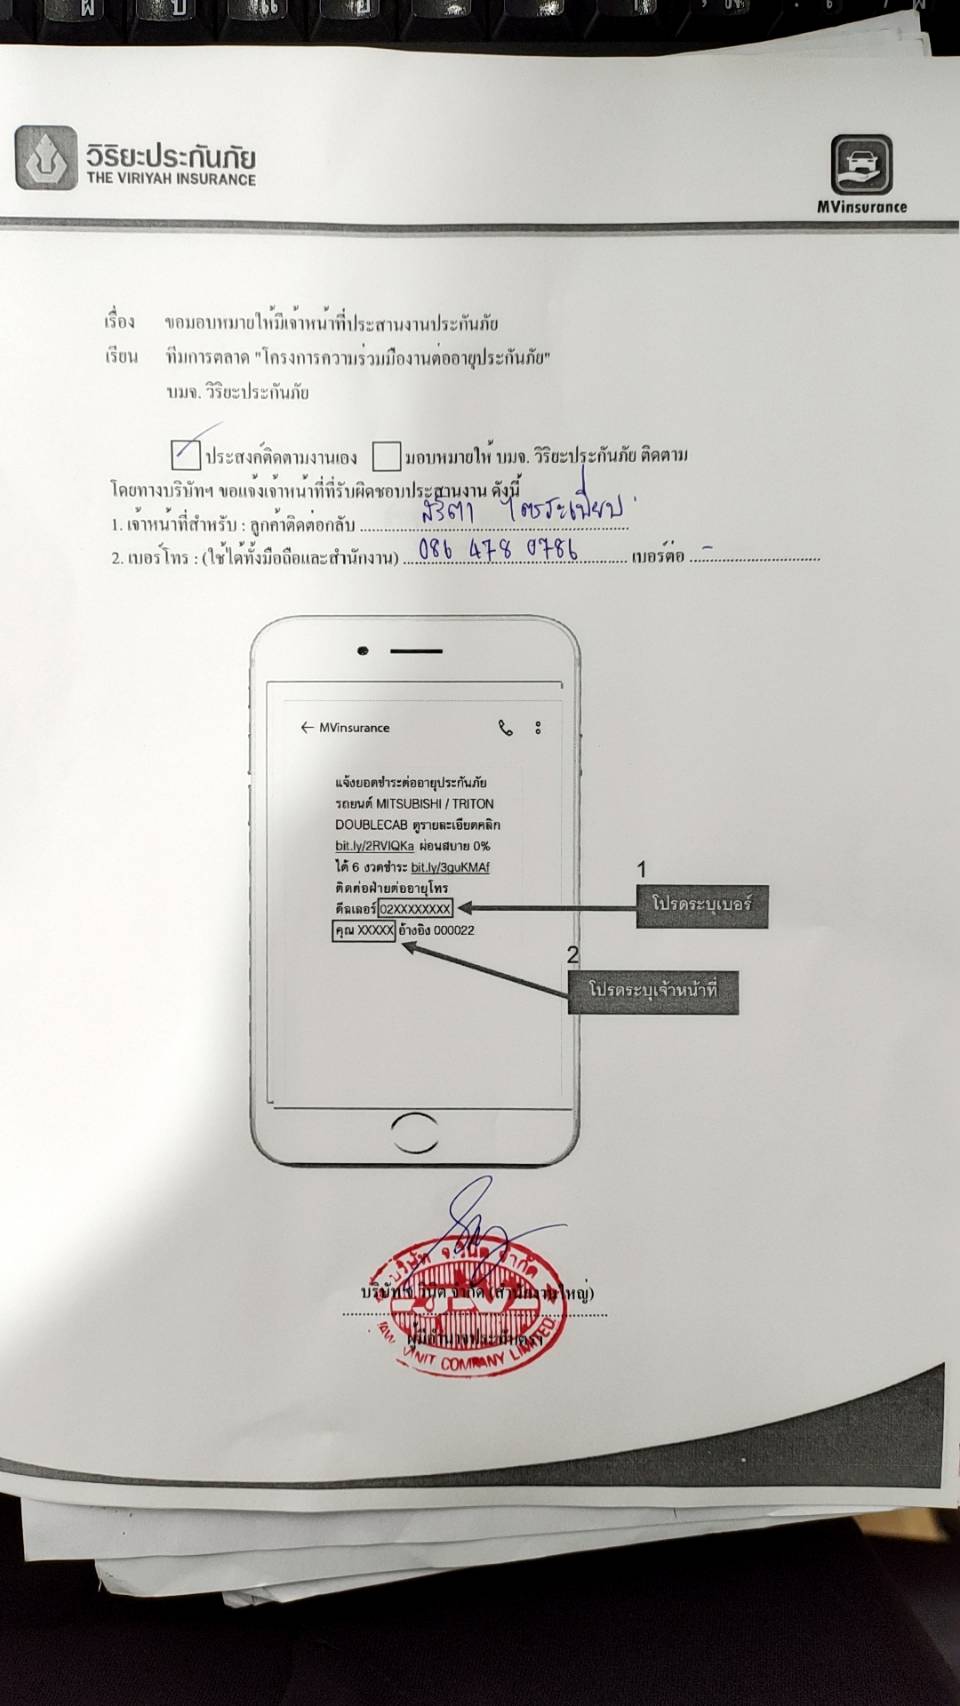 วิริยะประกันภัย
THE VIRIYAH INSURANCE
MVinsurance
เรื่อง ขอมอบหมายให้มีเจ้าหน้าที่ประสานงานประกันภัย
เรียน ทีมการตลาด "โครงการความร่วมมืองานต่ออายุประกันภัย"
บมจ. วิริยะประกันภัย
ประสงค์ติดตามงานเอง มอบหมายให้ บมจ. วิริยะประกันภัย ติดตาม
โดยทางบริษัทฯ ขอแจ้งเจ้าหน้าที่ที่รับผิดชอบประสานงาน ดังนี้
1. เจ้าหน้าที่สำหรับ : ลูกค้าติดต่อกลับ
2. เบอร์โทร : (ใช้ได้ทั้งมือถือและสำนักงาน) 086 478 0786 เบอร์ต่อ -
← MVinsurance
แจ้งยอดชำระต่ออายุประกันภัย
รถยนต์ MITSUBISHI / TRITON
DOUBLECAB ดูรายละเอียดคลิก
bit.ly/2RVIQKa ผ่อนสบาย 0%
ได้ 6 งวดชำระ bit.ly/3guKMAf
ติดต่อฝ่ายต่ออายุโทร
ดีลเลอร์ 02XXXXXXXX
คุณ XXXXX อ้างอิง 000022
1
โปรดระบุเบอร์
2
โปรดระบุเจ้าหน้าที่
บริษัท จ.วินิต จำกัด
บริษัท จ.วินิต จำกัด (สำนักงานใหญ่)
ผู้มีอำนาจประทับตรา
VINIT COMPANY LIMITED